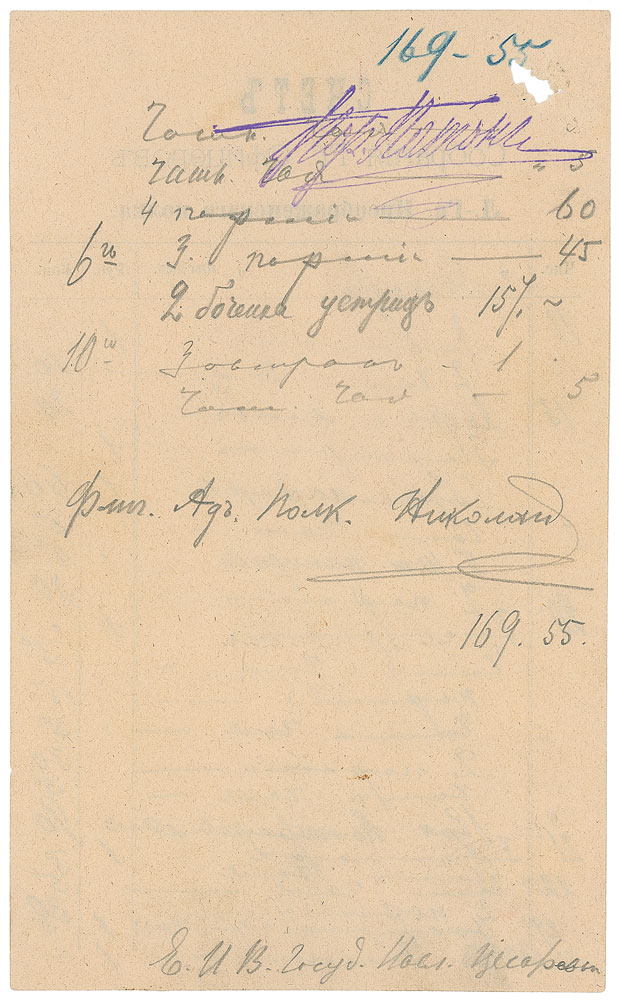 169 - 55
Чашк.
Чашк. Чая " 5
4 порции 60
6го 3. порции — 45
2 боченка устрицъ 15 /. ~
10го Завтракъ - 1
Чаш. Чая — 5
Флиг. Адъ. Полк. Николай
169. 55.
Е. И. В. Госуд. Насл. Цесарев